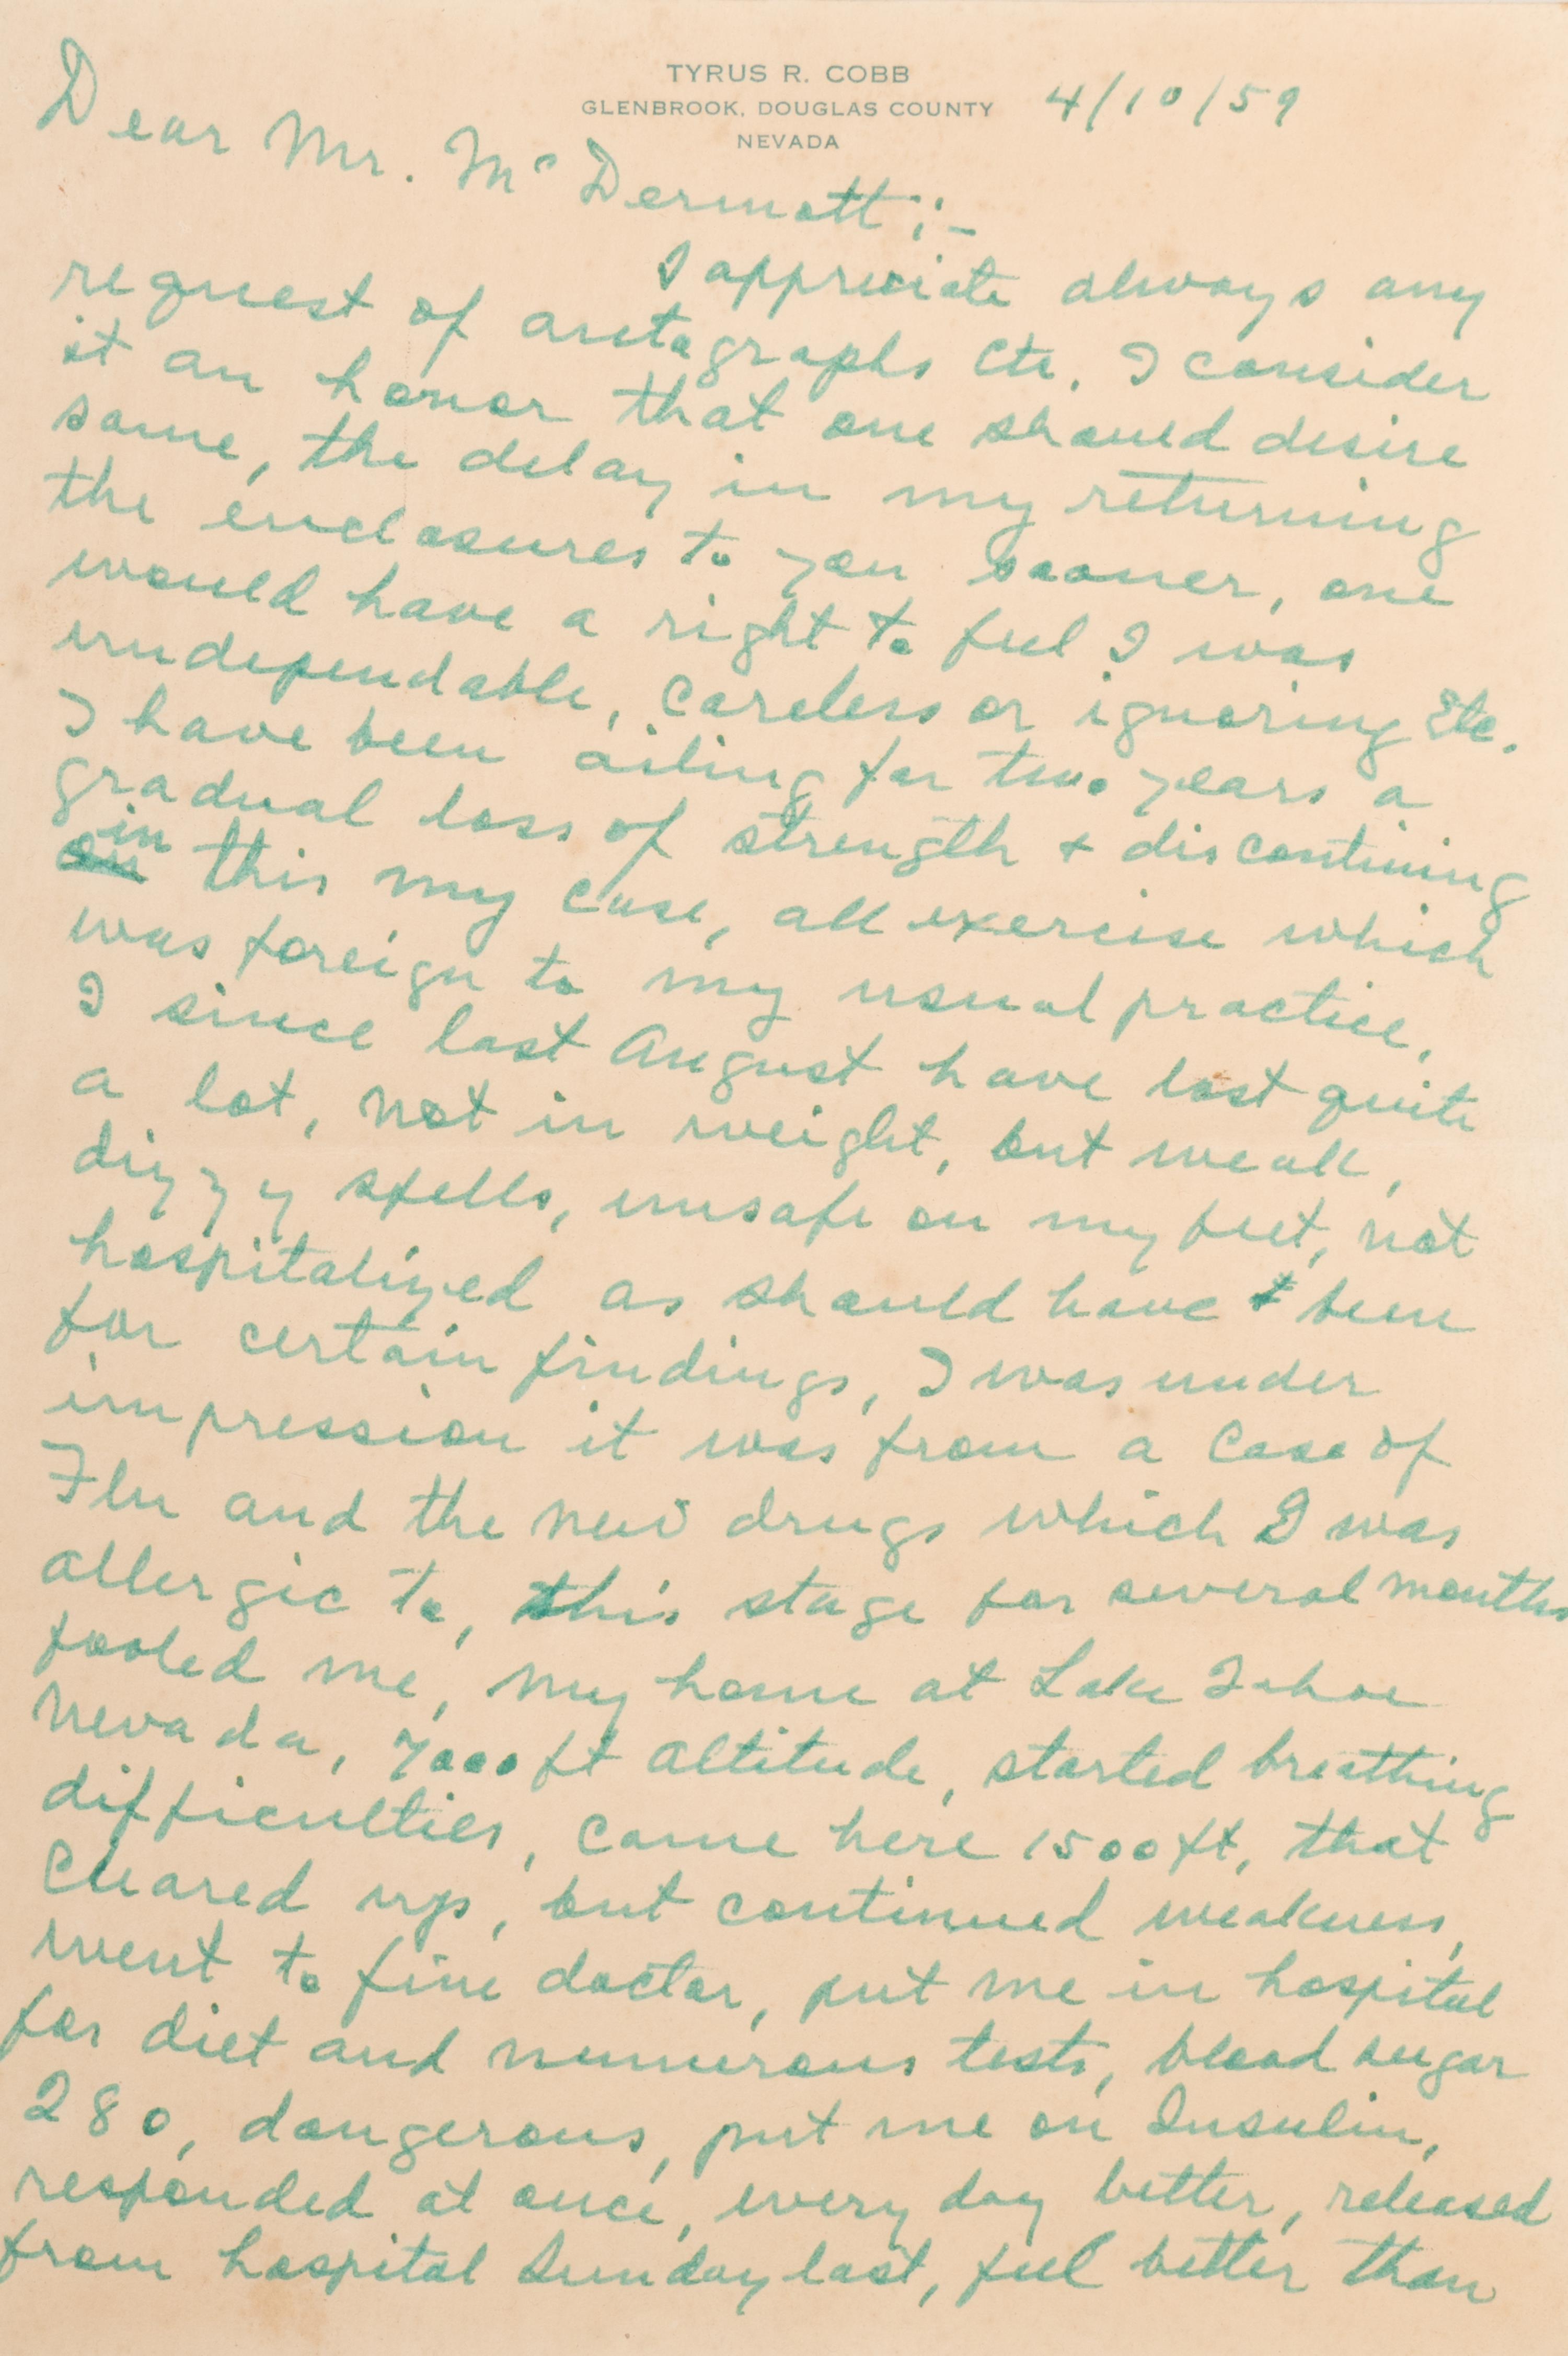 TYRUS R. COBB
GLENBROOK, DOUGLAS COUNTY
NEVADA
4/10/59
Dear Mr. McDermott :-
I appreciate always any
request of autographs etc. I consider
it an honor that one should desire
same, the delay in my returning
the enclosures to you sooner, one
would have a right to feel I was
undependable, careless or ignoring Etc.
I have been ailing for two years a
gradual loss of strength & discontinuing
in this my case, all exercise which
was foreign to my usual practice,
I since last August have lost quite
a lot, not in weight, but weak,
dizzy spells, unsafe on my feet, not
hospitalized as should have been
for certain findings, I was under
impression it was from a case of
Flu and the new drugs which I was
allergic to, this stage for several months
fooled me, my home at Lake Tahoe
Nevada, 7000 ft altitude, started breathing
difficulties, came here 1500 ft, that
cleared up, but continued weakness,
went to fine doctor, put me in hospital
for diet and numerous tests, blood sugar
280, dangerous, put me on Insulin,
responded at once, every day better, released
from hospital Sunday last, feel better than